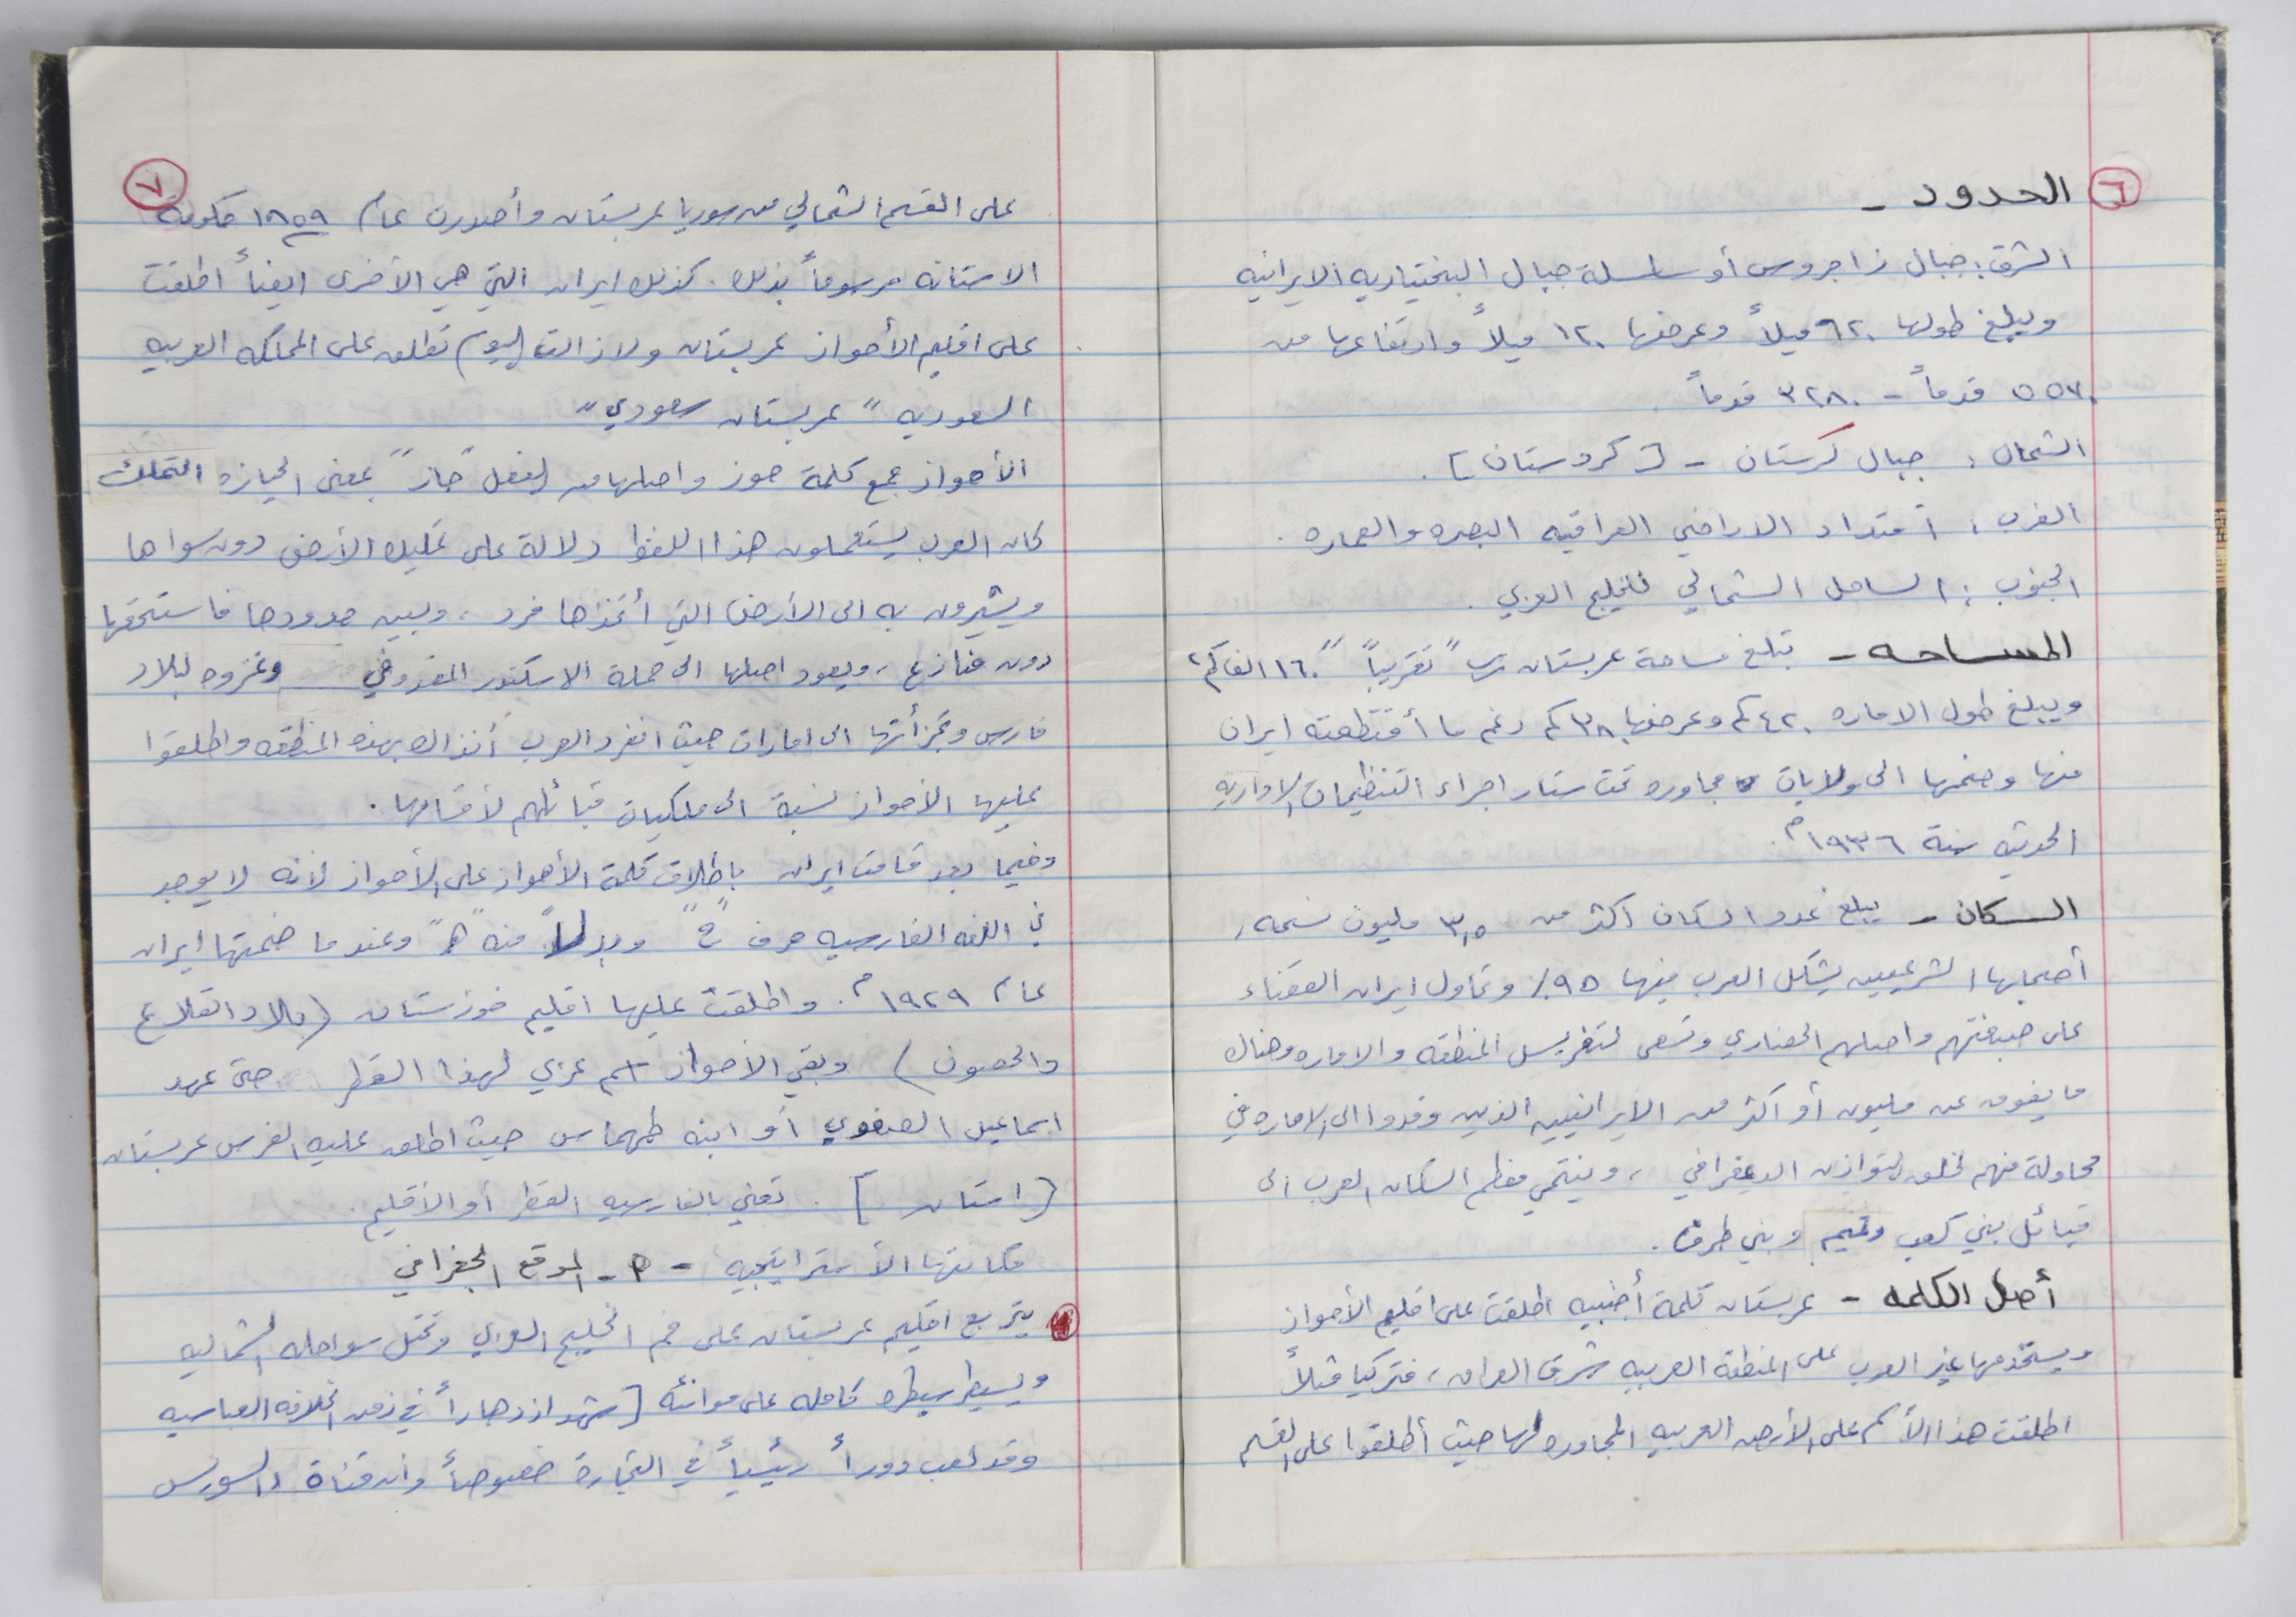 ٦
الحدود -
الشرق : جبال زاجروس أو سلسلة جبال البختياريه الايرانيه
ويبلغ طولها ٦٢٠ ميلاً وعرضها ١٢٠ ميلاً وارتفاعها من
٥٥٧٠ قدماً - ٣٢٨٠ قدماً .
الشمال : جبال كرستان - [ كردستان ] .
الغرب : أمتداد الاراضي العراقيه البصره والعماره .
الجنوب : الساحل الشمالي للخليج العربي .
المساحه - تبلغ مساحة عربستان " تقريباً " ١٦٠ الف كم٢
ويبلغ طول الاماره ٤٢٠ كم وعرضها ٣٨٠ كم رغم ما أقتطعته ايران
منها وضمها الى ولايات مجاوره تحت ستار اجراء التنظيمات الاداريه
الحديثه سنة ١٩٣٦م.
السكان - يبلغ عدد السكان اكثر من ٣,٥ مليون نسمه ,
أصحابها الشرعيين يشكل العرب فيها ٩٥٪ وتحاول ايران القضاء
على صبغتهم واصلهم الحضاري وتسعى لتفريس المنطقه والاماره وهناك
ما يفوق عن مليون أو اكثر من الايرانيين الذين وفدوا الى الاماره في
محاولة منهم لخلق التوازن الديمغرافي ، وينتمي معظم السكان العرب الى
قبائل بني كعب وتميم وبني طرف .
أصل الكلمه - عربستان كلمة أجنبيه اطلقت على اقليم الأحواز
ويستخدمها غير العرب على المنطقه العربيه شرق العراق ، فتركيا مثلاً
اطلقت هذا الأسم على الأرض العربيه المجاوره لها حيث أطلقوا على القسم
٧
على القسم الشمالي من سوريا عربستان وأصدرت عام ١٨٥٩ حكومة
الاستانه مرسوماً بذلك . كذلك ايران التي هي الأخرى ايضاً اطلقت
على اقليم الأحواز عربستان ولازالت اليوم تطلق على المملكه العربيه
السعوديه " عربستان سعودي "
الأحواز جمع كلمة حوز واصلها من الفعل " حاز " بمعنى الحيازه التملك
كان العرب يستعملون هذا اللفظ دلالة على تمليك الأرض دون سواها
ويشيرون به الى الأرض التي أتخذها فرد ، وبين حدودها فاستحقها
دون منازع ، ويعود اصلها الى حملة الاسكندر المقدوني وغزوه لبلاد
فارس وتجزأتها الى امارات حيث انفرد العرب أنذاك بهذه المنطقه واطلقوا
عليها الأحواز نسبة الى ملكيات قبائلهم لأقسامها .
وفيما بعد قامت ايران باطلاق كلمة الأهواز على الأحواز لأنه لا يوجد
في اللغه الفارسيه حرف " ح " وبدلاً منه " ه " وعندما ضمتها ايران
عام ١٩٢٩م. واطلقت عليها اقليم خوزستان ( بلاد القلاع
والحصون ) وبقي الأحواز اسم عربي لهذا القطر حتى عهد
اسماعيل الصفوي أو ابنه طهماس حيث اطلق عليه الفرس عربستان
[ استان ] . تعني بالفارسيه القطر أو الأقليم .
مكانتها الأستراتيجيه - ١- الموقع الجغرافي
يتربع اقليم عربستان على فم الخليج العربي وتحتل سواحله الشماليه
ويسيطر سيطره كامله على موانئه [ شهد ازدهاراً في زمن الخلافه العباسيه
وقد لعب دوراً رئيسياً في التجارة خصوصاً وان قناة السويس